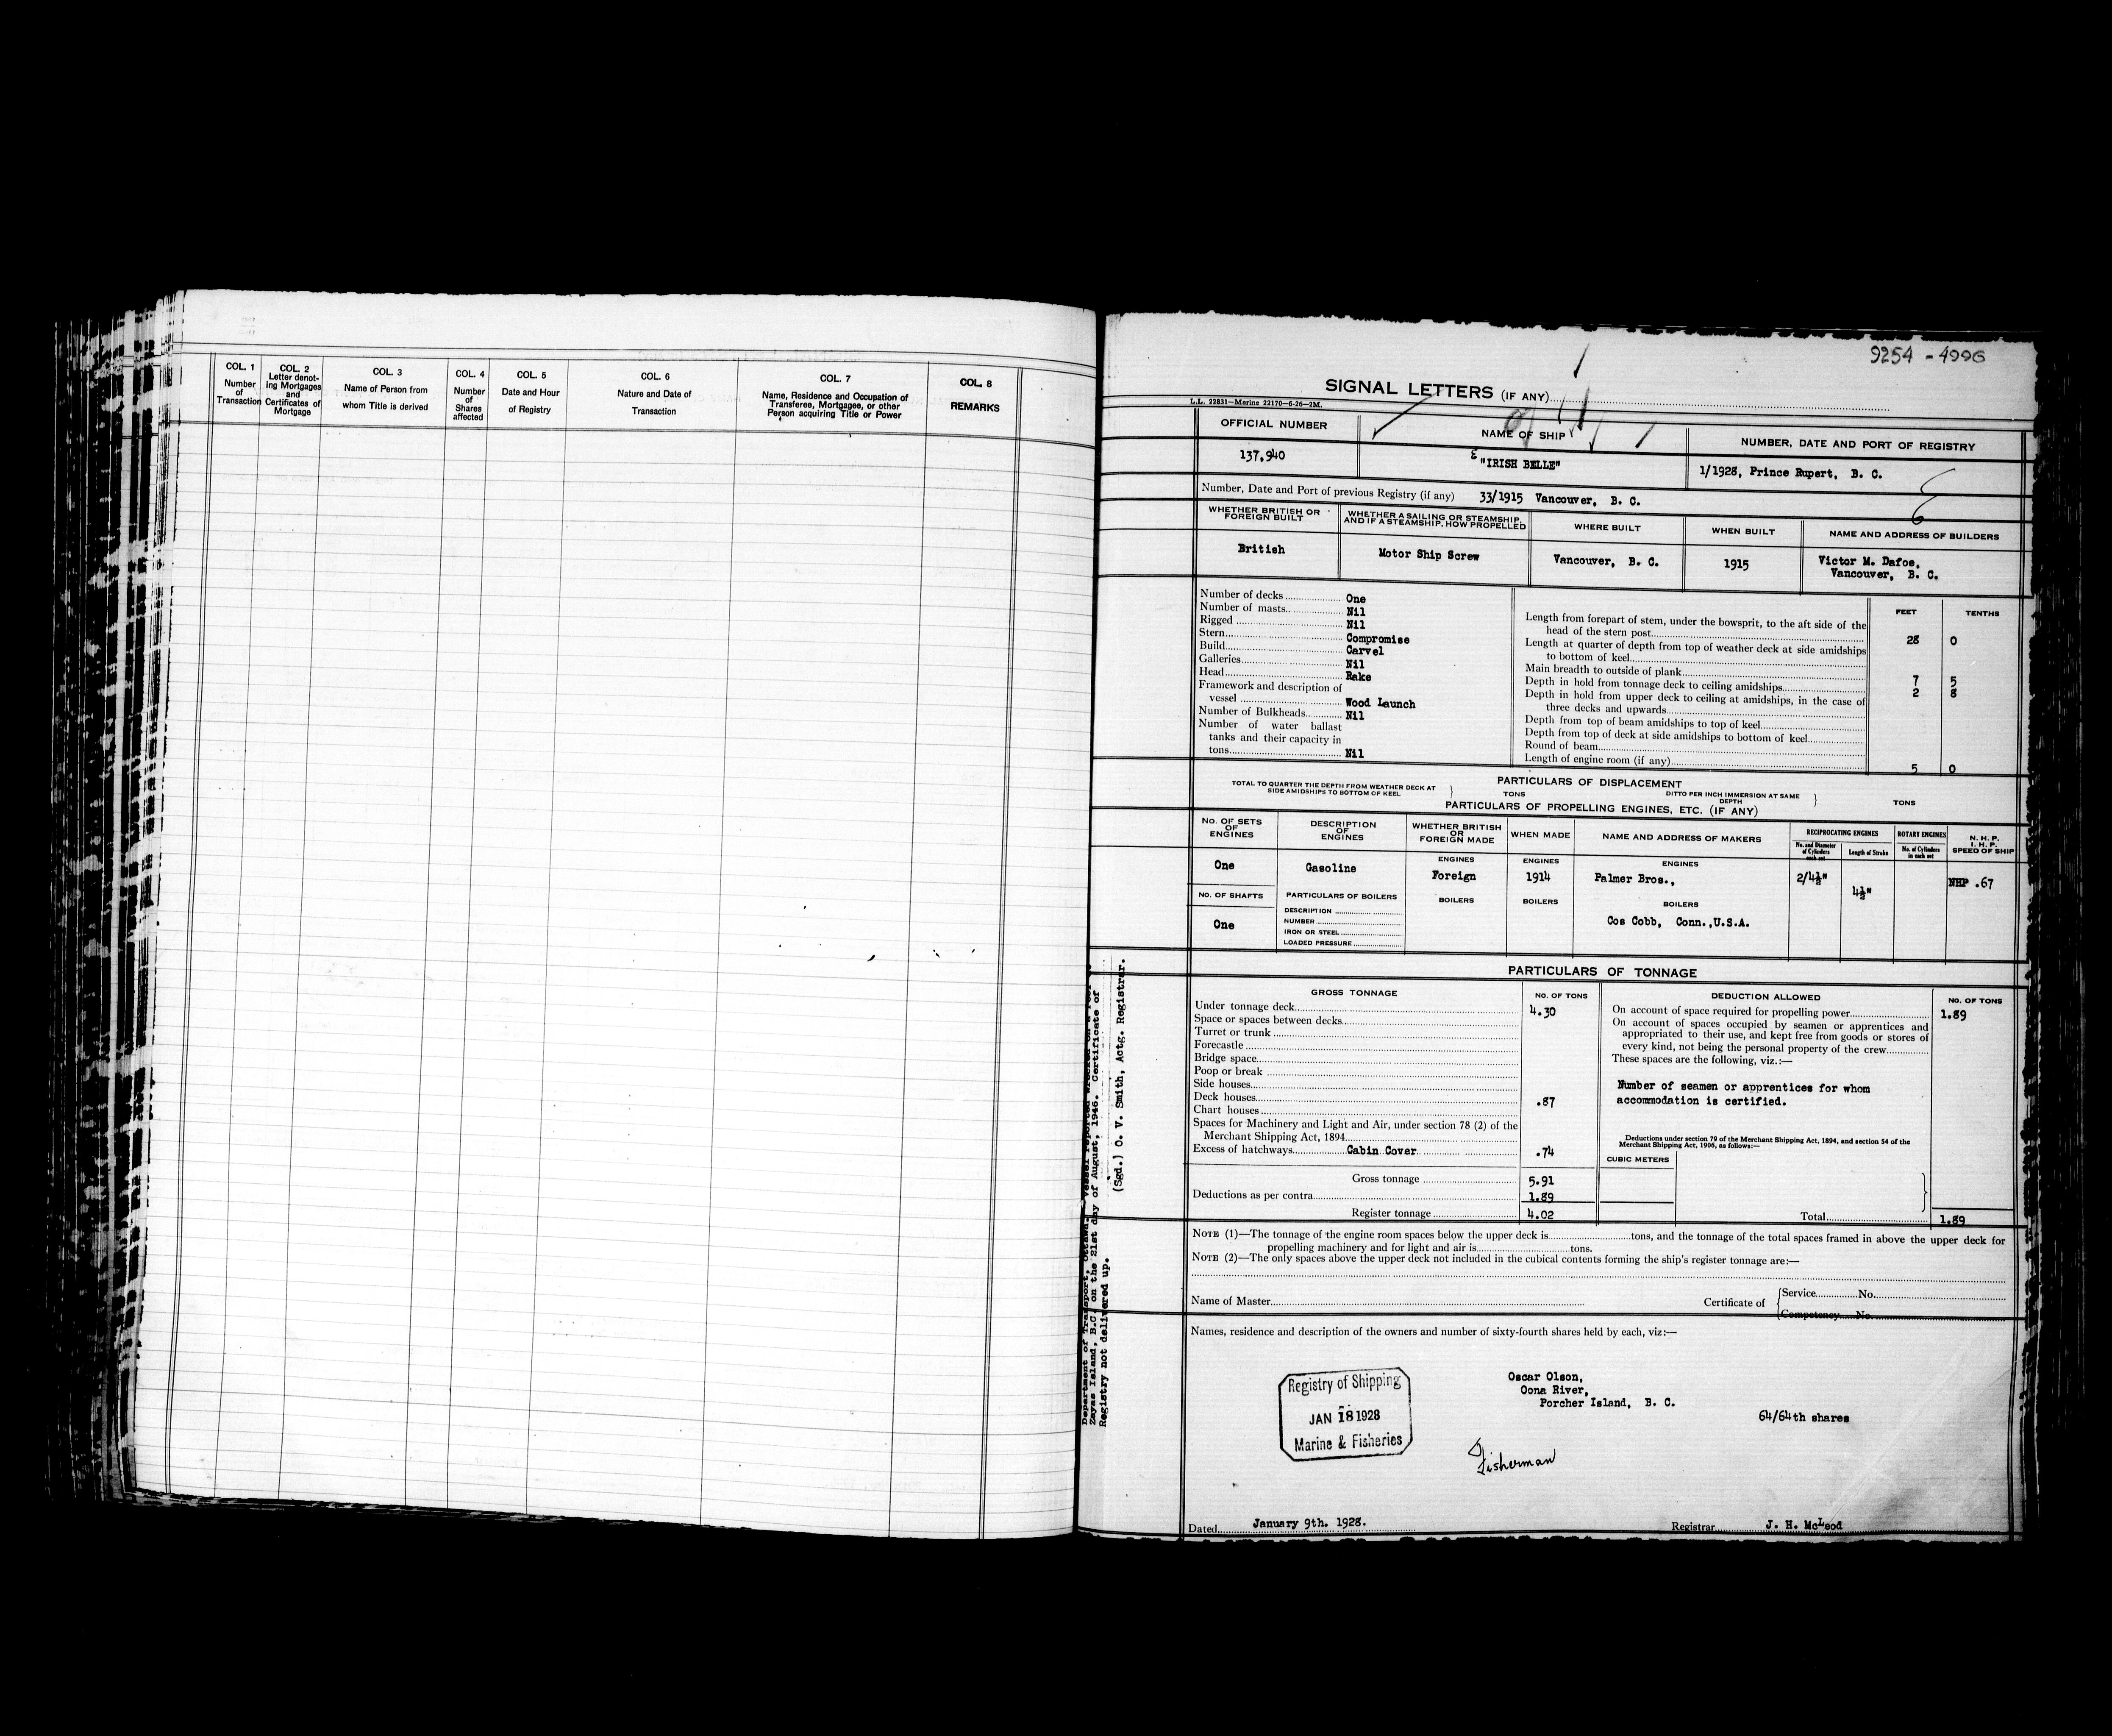 COL. 1
Number
of
Transaction
COL. 2
Letter denot-
ing Mortgages
and
Certificates of
Mortgage
COL. 3
Name of Person from
whom Title is derived
COL. 4
Number
of
Shares
affected
COL. 5
Date and Hour
of Registry
COL. 6
Nature and Date of
Transaction
COL. 7
Name, Residence and Occupation of
Transferee, Mortgagee, or other
Person acquiring Title or Power
COL. 8
REMARKS
9254 - 4996
SIGNAL LETTERS (IF ANY)
L.L. 22831—Marine 22170—6-26—2M.
OFFICIAL NUMBER
NAME OF SHIP
NUMBER, DATE AND PORT OF REGISTRY
137,940
"IRISH BELLE"
1/1928, Prince Rupert, B. C.
Number, Date and Port of previous Registry (if any) 33/1915 Vancouver, B. C.
WHETHER BRITISH OR
FOREIGN BUILT
WHETHER A SAILING OR STEAMSHIP,
AND IF A STEAMSHIP, HOW PROPELLED
WHERE BUILT
WHEN BUILT
NAME AND ADDRESS OF BUILDERS
British
Motor Ship Screw
Vancouver, B. C.
1915
Victor M. Dafoe,
Vancouver, B. C.
Number of decks One
Number of masts Nil
Rigged Nil
Stern Compromise
Build Carvel
Galleries Nil
Head Rake
Framework and description of
vessel Wood Launch
Number of Bulkheads Nil
Number of water ballast
tanks and their capacity in
tons Nil
FEET TENTHS
Length from forepart of stem, under the bowsprit, to the aft side of the
head of the stern post 28 0
Length at quarter of depth from top of weather deck at side amidships
to bottom of keel
Main breadth to outside of plank 7 5
Depth in hold from tonnage deck to ceiling amidships 2 8
Depth in hold from upper deck to ceiling at amidships, in the case of
three decks and upwards
Depth from top of beam amidships to top of keel
Depth from top of deck at side amidships to bottom of keel
Round of beam
Length of engine room (if any) 5 0
PARTICULARS OF DISPLACEMENT
TOTAL TO QUARTER THE DEPTH FROM WEATHER DECK AT
SIDE AMIDSHIPS TO BOTTOM OF KEEL
TONS
DITTO PER INCH IMMERSION AT SAME
DEPTH
TONS
PARTICULARS OF PROPELLING ENGINES, ETC. (IF ANY)
NO. OF SETS
OF
ENGINES
DESCRIPTION
OF
ENGINES
WHETHER BRITISH
OR
FOREIGN MADE
WHEN MADE
NAME AND ADDRESS OF MAKERS
RECIPROCATING ENGINES
No. and Diameter
of Cylinders
each set
Length of Stroke
ROTARY ENGINES
No. of Cylinders
in each set
N. H. P.
I. H. P.
SPEED OF SHIP
ENGINES
ENGINES
ENGINES
One
Gasoline
Foreign
1914
Palmer Bros.,
2/4½"
4½"
NHP .67
NO. OF SHAFTS
PARTICULARS OF BOILERS
BOILERS
BOILERS
BOILERS
One
DESCRIPTION
NUMBER
IRON OR STEEL
LOADED PRESSURE
Cos Cobb, Conn.,U.S.A.
PARTICULARS OF TONNAGE
GROSS TONNAGE
NO. OF TONS
Under tonnage deck 4.30
Space or spaces between decks
Turret or trunk
Forecastle
Bridge space
Poop or break
Side houses
Deck houses .87
Chart houses
Spaces for Machinery and Light and Air, under section 78 (2) of the
Merchant Shipping Act, 1894
Excess of hatchways Cabin Cover .74
Gross tonnage 5.91
Deductions as per contra 1.89
Register tonnage 4.02
DEDUCTION ALLOWED
NO. OF TONS
On account of space required for propelling power 1.89
On account of spaces occupied by seamen or apprentices and
appropriated to their use, and kept free from goods or stores of
every kind, not being the personal property of the crew
These spaces are the following, viz.:—
Number of seamen or apprentices for whom
accommodation is certified.
Deductions under section 79 of the Merchant Shipping Act, 1894, and section 54 of the
Merchant Shipping Act, 1906, as follows:—
CUBIC METERS
Total 1.89
NOTE (1)—The tonnage of the engine room spaces below the upper deck is tons, and the tonnage of the total spaces framed in above the upper deck for
propelling machinery and for light and air is tons.
NOTE (2)—The only spaces above the upper deck not included in the cubical contents forming the ship's register tonnage are:—
Name of Master
Certificate of
Service No.
Competency No.
Names, residence and description of the owners and number of sixty-fourth shares held by each, viz:—
Registry of Shipping
JAN 18 1928
Marine & Fisheries
Oscar Olson,
Oona River,
Porcher Island, B. C.
64/64th shares
Fisherman
Dated January 9th. 1928.
Registrar J. H. McLeod
Department of Transport, Ottawa. Vessel reported wrecked on a reef
Zayas Island, B.C. on the 21st day of August, 1946. Certificate of
Registry not delivered up.
(Sgd.) O. V. Smith, Actg. Registrar.